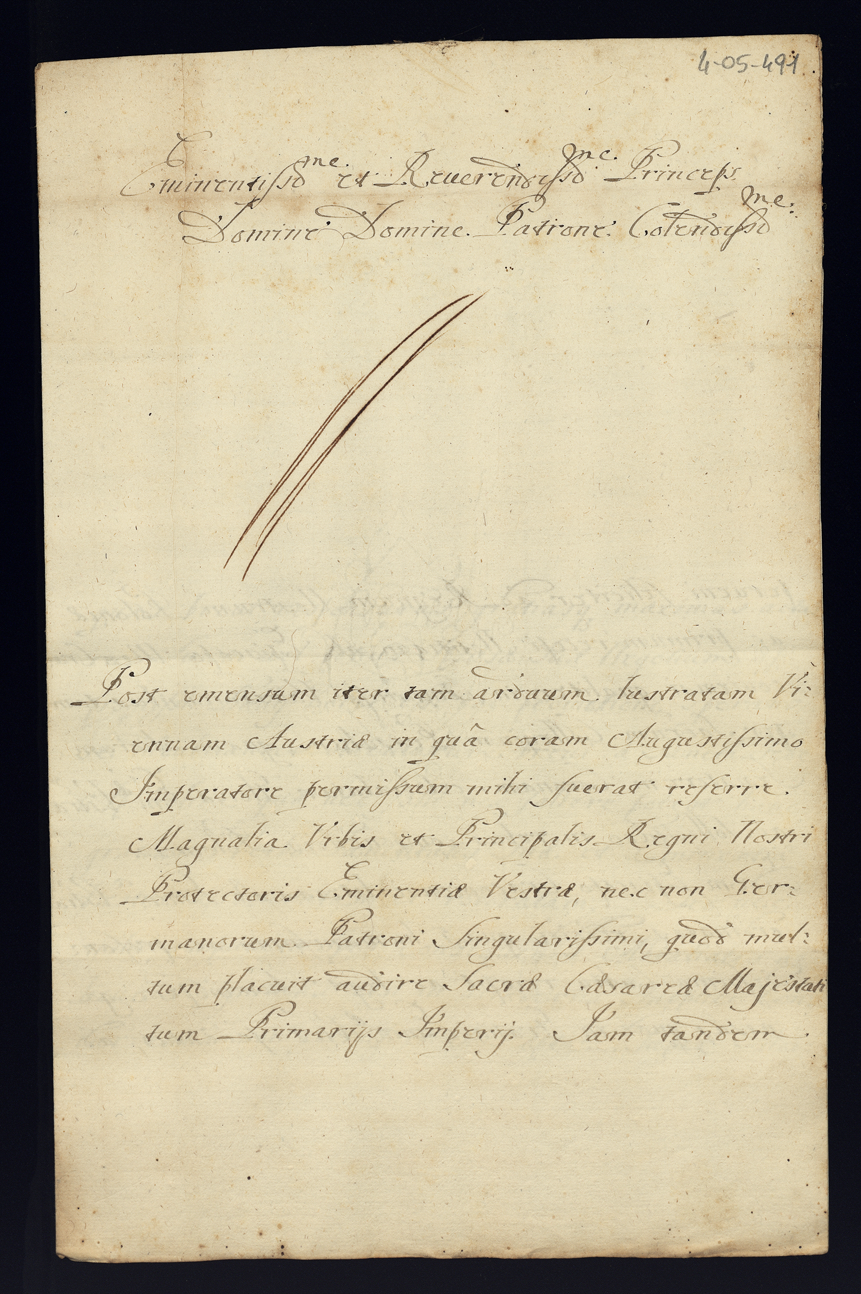 4-05-491
Eminentissme. et Reverendissme. Princeps
Domine Domine. Patrone. Colendissme.
Post emensum iter tam arduum. lustratam Vi:
ennam Austriæ in quâ coram Augustissimo
Imperatore permissum mihi fuerat referre.
Magnalia. Vrbis et Principalis Regni Nostri
Protectoris Eminentiæ Vestræ, nec non Ger:
manorum. Patroni Singularissimi, quod mul:
tum placuit audire Sacræ Cæsareæ Majestati
tum Primarijs Imperij. Jam tandem